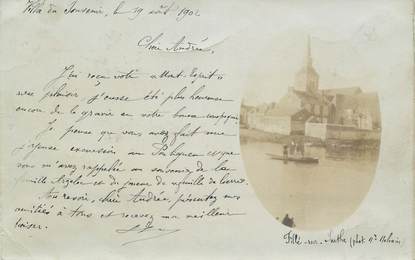 Villa du Souvenir, le 29 août 1902
Chère Andrée,
J'ai reçu votre "Mont-
avec plaisir j'eusse été plus heureuse
encore de la gravir en votre bonne compagnie
Je pense que vous avez fait une
excursion au et que
vous m'avez rappelée au souvenir de la
famille et du
Au revoir, chère Andrée, présentez mes
amitiés à tous et recevez mon meilleur
baiser.
Fillé-sur-Sarthe (phot.